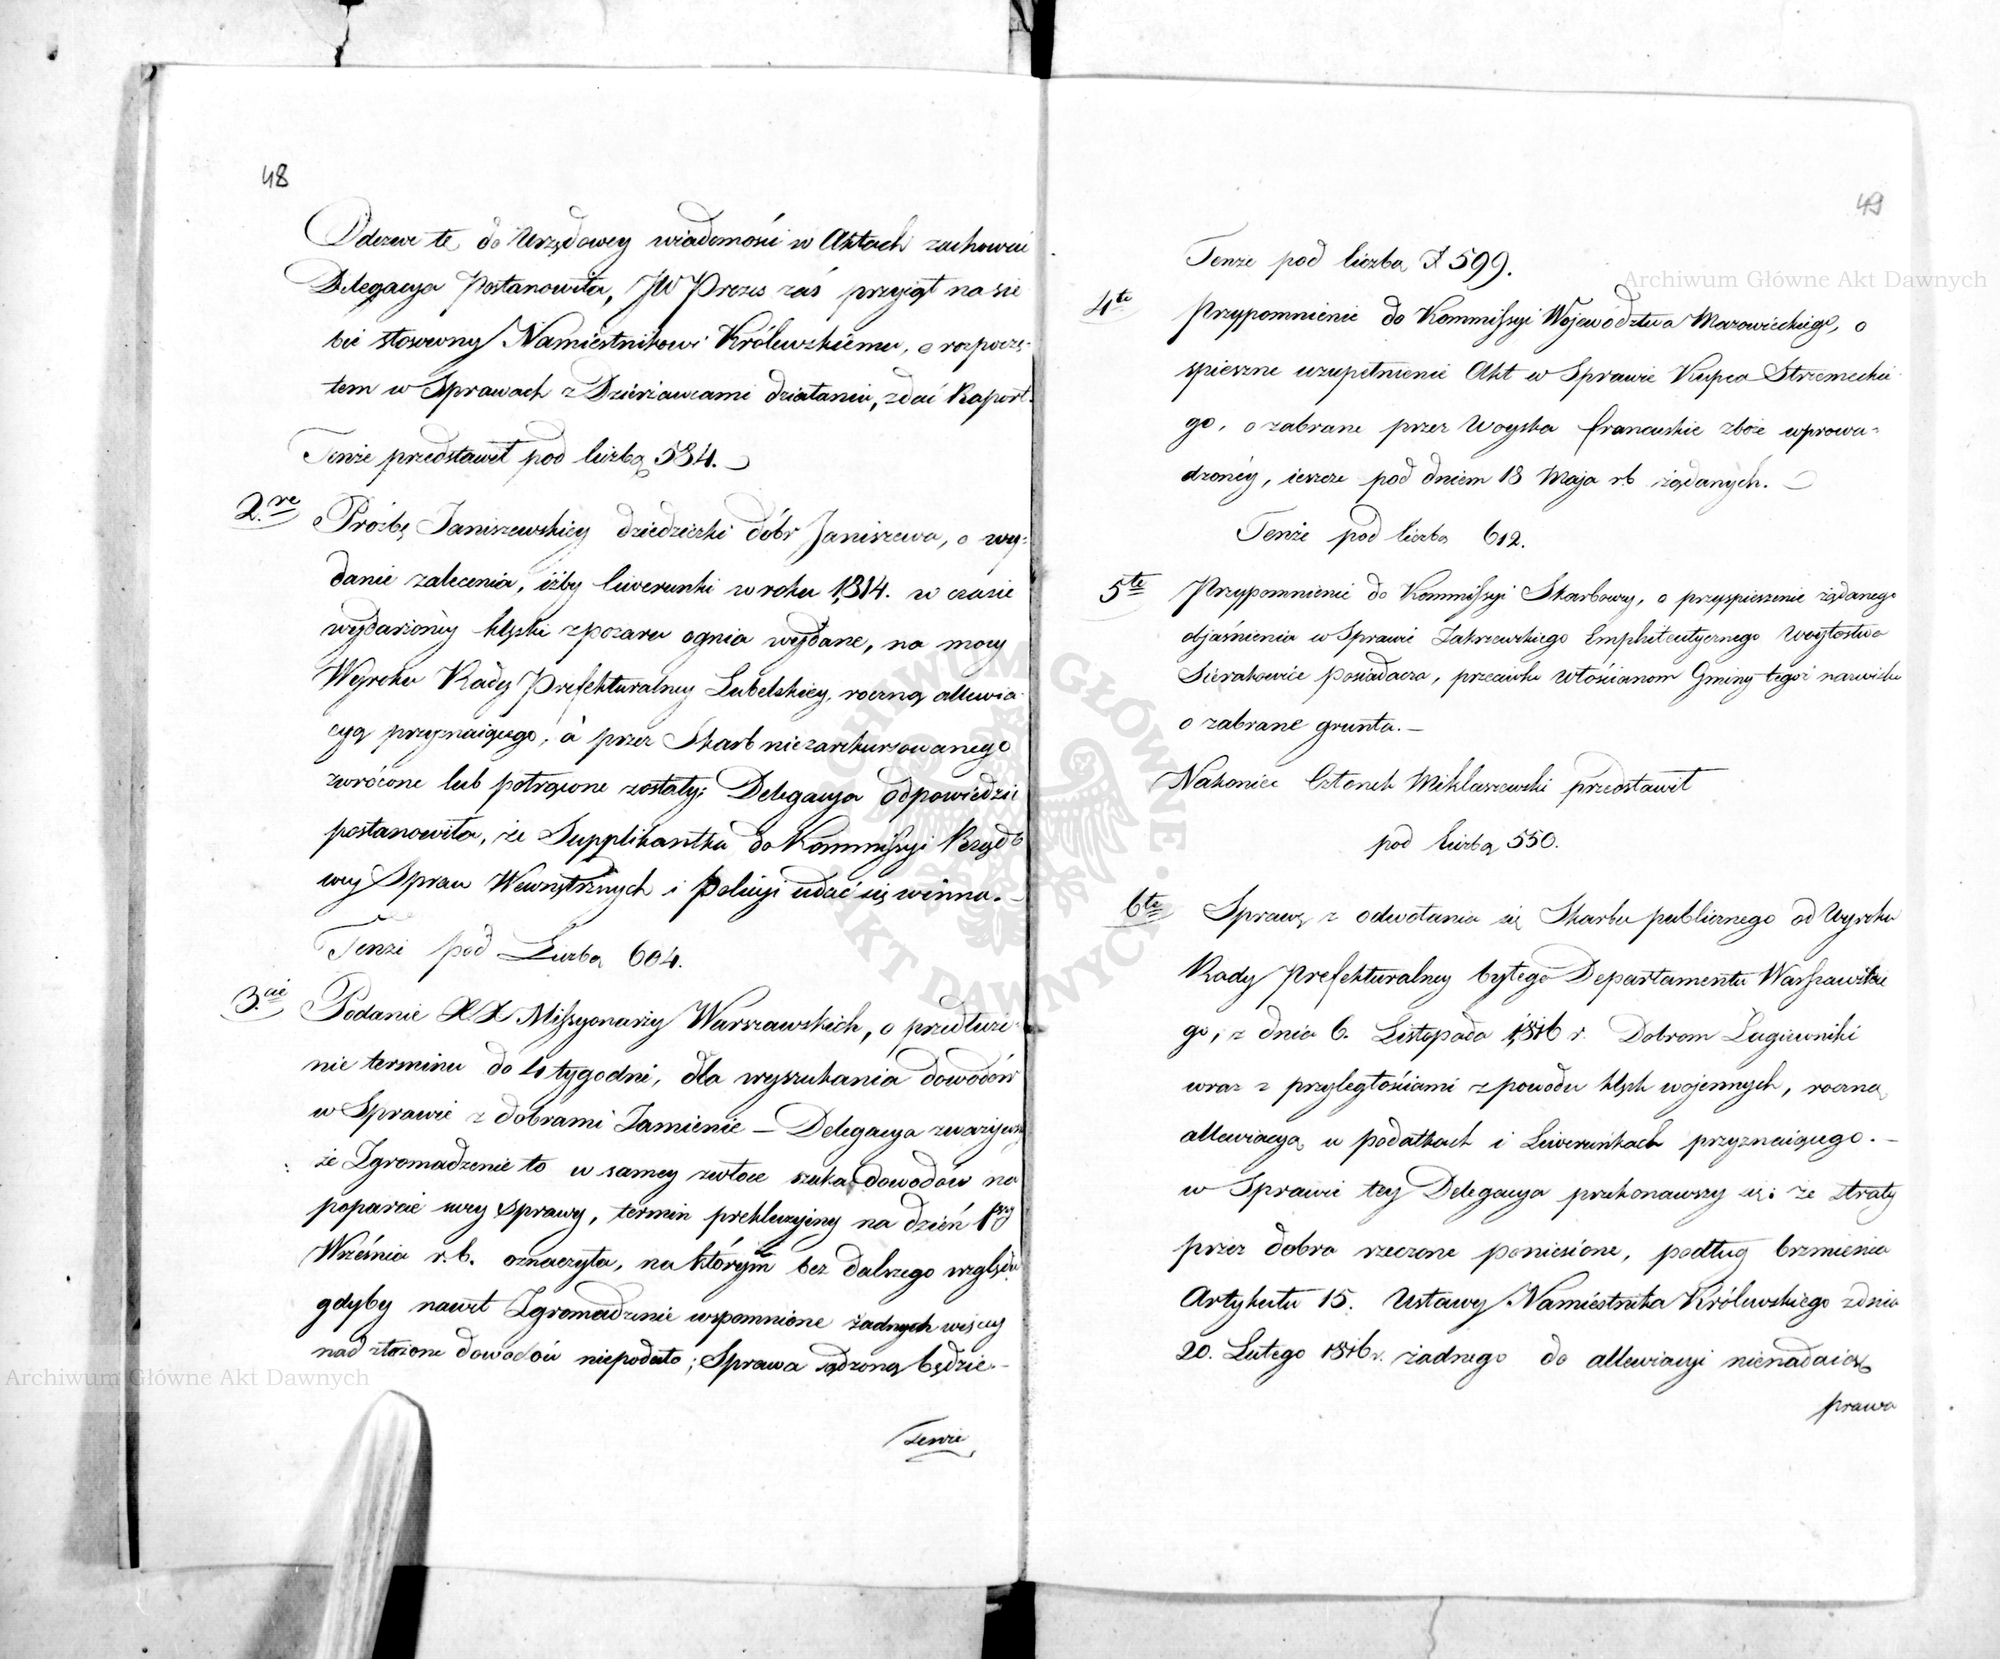 48
Odezwę tę do Urzędowey wiadomości w Aktach zachować
Delegacya Postanowiła, JW Prezes zaś przyiął na sie
bie stosowny Namiestnikowi Królewskiemu, o rozpoczę-
tem w Sprawach z Dzierżawcami działaniu, zdać Raport.
Tenże przedstawił pod liczbą 584.
2.re Prożbę Janiszewskiey dziedziczki dóbr Janiszewa, o wy-
danie zalecenia, iżby liwerunki w roku 1814. w czasie
wydarzoney klęski z pożaru ognia wydane, na mocy
Wyroku Rady Prefekturalney Lubelskiey, roczną allewia-
cyą przyznaiącego, à przez Skarb niezarekursowanego
zwrócone lub potrącone zostały; Delegacya odpowiedzić
postanowiła, że Supplikantka do Kommissyi Rządo
wey Spraw Wewnętrznych i Policyi udać się winna.
Tenże pod Liczbą 604.
3.cie Podanie XX Missyonarzy Warszawskich, o przedłuże-
nie terminu do 4 tygodni, dla wyszukania dowodów
w Sprawie z dobrami Zamienie – Delegacya zważywszy
że Zgromadzenie to w samey zwłoce szuka dowodów na
poparcie swey sprawy, termin prekluzyiny na dzień 1szy
Września r.b. oznaczyła, na którym bez dalszego względu
gdyby nawet Zgromadzenie wspomnione żadnych więcey
nad złożone dowodów niepodało; Sprawa sądzoną będzie.–
Tenże
49
Tenże pod liczbą 599.
4te Przypomnienie do Kommissyi Województwa Mazowieckiego, o
spieszne uzupełnienie Akt w Sprawie Kupca Strzemeckie-
go, o zabrane przez Woyska francuskie zboże wprowa-
dzoney, ieszcze pod dniem 18 Maja r.b. żądanych.
Tenże pod liczbą 612.
5te Przypomnienie do Kommissyi Skarbowey, o przyspieszenie żądanego
objaśnienia w Sprawie Zakrzewskiego Emphiteutycznego Woytostwa
Sierakowice posiadacza, przeciwko Włościanom Gminy tegoż nazwiska
o zabrane grunta.–
Nakoniec Członek Miklaszewski przedstawił
pod liczbą 550.
6te Sprawę z odwołania się Skarbu publicznego od Wyroku
Rady Prefekturalney byłego Departamentu Warszawskie
go, z dnia 6. Listopada 1816 r. Dobrom Łagiewniki
wraz z przyległościami z powodu klęsk wojennych, roczną
allewiacyą w podatkach i Liwerunkach przyznaiącego.–
w Sprawie tey Delegacya przekonawszy się: że straty
przez dobra rzeczone poniesione, podług brzmienia
Artykułu 15. Ustawy Namiestnika Królewskiego z dnia
20. Lutego 1816 r. żadnego do allewiacyi nienadaią
prawa
Archiwum Główne Akt Dawnych
Archiwum Główne Akt Dawnych
ARCHIWUM GŁÓWNE AKT DAWNYCH